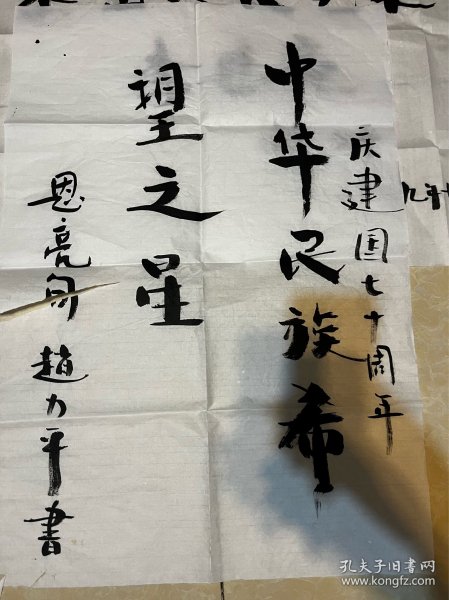 庆建国七十周年
中华民族希
望之星
恩亮句 趙力平書
孔夫子旧书网
www.kongfz.com